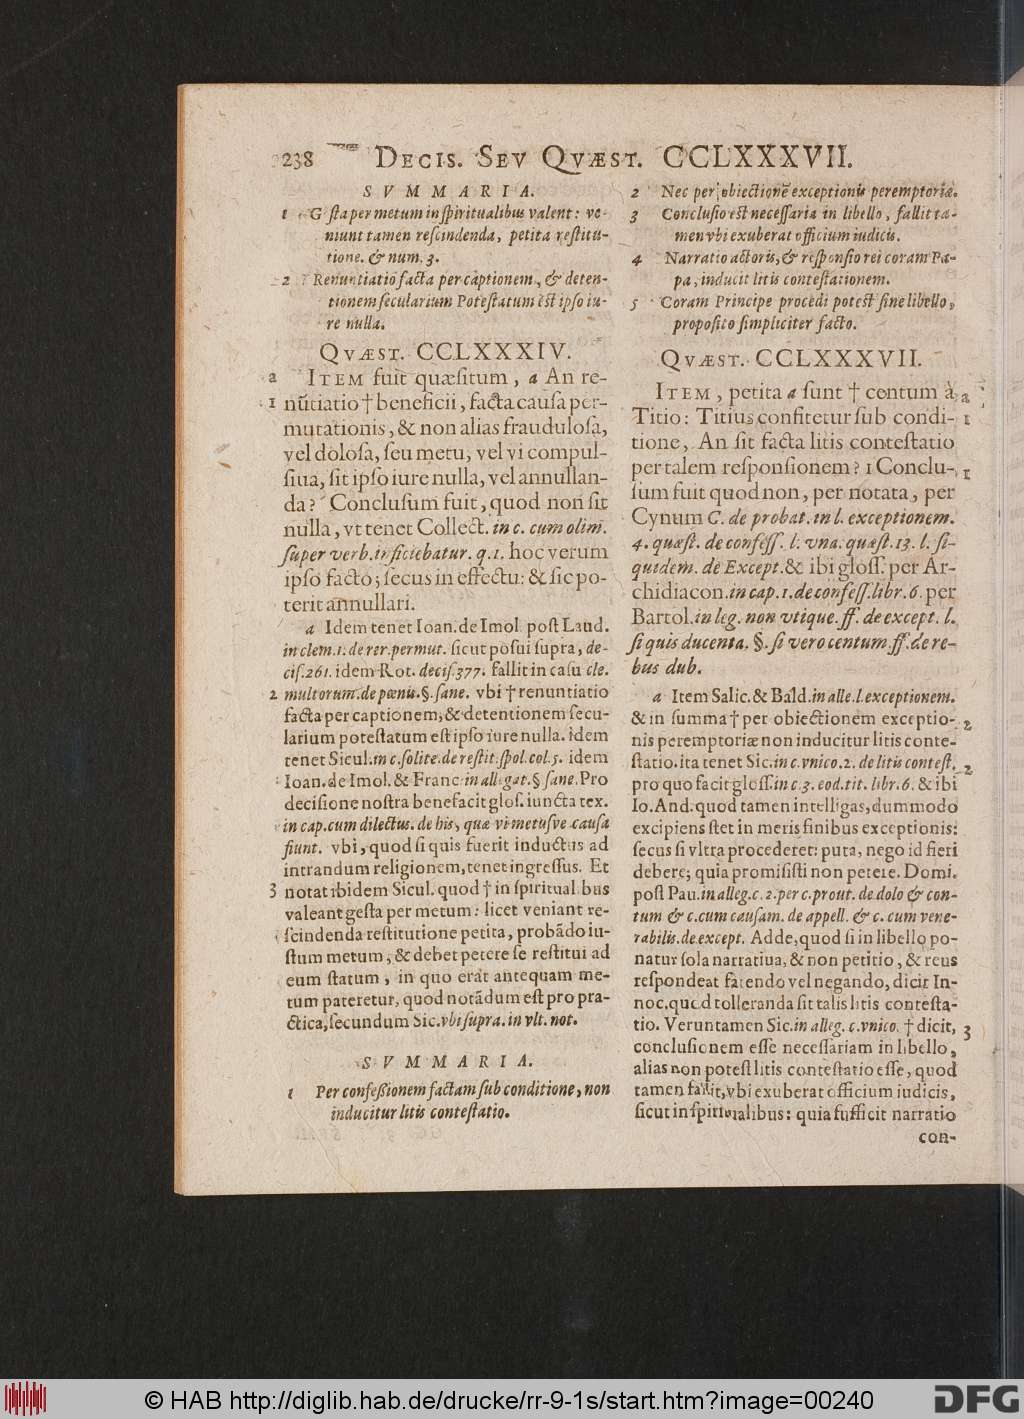 238 DECIS. SEV QVÆST. CCLXXXVII.
SVMMARIA.
1 Gesta per metum in spiritualibus valent: ve-
niunt tamen rescindenda, petita restitu-
tione. & num. 3.
2 Renuntiatio facta per captionem, & deten-
tionem secularium Potestatum est ipso iu-
re nulla.
QVÆST. CCLXXXIV.
a ITEM fuit quæsitum, a An re-
1 nũtiatio † beneficii, facta causa per-
mutationis, & non alias fraudulosa,
vel dolosa, seu metu, vel vi compul-
siua, sit ipso iure nulla, vel annullan-
da? Conclusum fuit, quod non sit
nulla, vt tenet Collect. in c. cum olim.
super verb. inficiebatur. q. 1. hoc verum
ipso facto; secus in effectu: & sic po-
terit annullari.
a Idem tenet Ioan. de Imol. post Laud.
in clem. 1. de rer. permut. sicut posui supra, de-
cis. 261. idem Rot. decis. 377. fallit in casu cle.
2 multorum. de pœnis. §. sane. vbi † renuntiatio
facta per captionem, & detentionem secu-
larium potestatum est ipso iure nulla. idem
tenet Sicul. in c. solite. de restit. spol. col. 5. idem
Ioan. de Imol. & Franc. in allegat. § sane. Pro
decisione nostra benefacit glos. iuncta tex.
in cap. cum dilectus. de his, quæ vi metusve causa
fiunt. vbi, quod si quis fuerit inductus ad
intrandum religionem, tenet ingressus. Et
3 notat ibidem Sicul. quod † in spiritualibus
valeant gesta per metum: licet veniant re-
scindenda restitutione petita, probãdo iu-
stum metum, & debet petere se restitui ad
eum statum, in quo erat antequam me-
tum pateretur, quod notãdum est pro pra-
ctica, secundum Sic. vbi supra. in vlt. not.
SVMMARIA.
1 Per confeßionem factam sub conditione, non
inducitur litis contestatio.
2 Nec per obiectionẽ exceptionis peremptoriæ.
3 Conclusio est necessaria in libello, fallit ta-
men vbi exuberat officium iudicis.
4 Narratio actoris, & responsio rei coram Pa-
pa, inducit litis contestationem.
5 Coram Principe procedi potest sine libello,
proposito simpliciter facto.
QVÆST. CCLXXXVII.
ITEM, petita a sunt † centum à a
Titio: Titius confitetur sub condi- 1
tione, An sit facta litis contestatio
per talem responsionem? 1 Conclu- 1
sum fuit quod non, per notata, per
Cynum C. de probat. in l. exceptionem.
4. quæst. de confess. l. vna. quæst. 13. l. si-
quidem. de Except. & ibi gloss. per Ar-
chidiacon. in cap. 1. de confess. libr. 6. per
Bartol. in leg. non vtique. ff. de except. l.
si quis ducenta. §. si vero centum. ff. de re-
bus dub.
a Item Salic. & Bald. in alle. l. exceptionem.
& in summa † per obiectionem exceptio- 2
nis peremptoriæ non inducitur litis conte-
statio. ita tenet Sic. in c. vnico. 2. de litis contest. 2
pro quo facit gloss. in c. 3. eod. tit. libr. 6. & ibi
Io. And. quod tamen intelligas, dummodo
excipiens stet in meris finibus exceptionis:
secus si vltra procederet: puta, nego id fieri
debere; quia promisisti non petere. Domi.
post Pau. in alleg. c. 2. per c. prout. de dolo & con-
tum & c. cum causam. de appell. & c. cum vene-
rabilis. de except. Adde, quod si in libello po-
natur sola narratiua, & non petitio, & reus
respondeat fatendo vel negando, dicit In-
noc. quod tolleranda sit talis litis contesta-
tio. Veruntamen Sic. in alleg. c. vnico. † dicit, 3
conclusionem esse necessariam in libello,
alias non potest litis contestatio esse, quod
tamen fallit, vbi exuberat officium iudicis,
sicut in spiritualibus: quia sufficit narratio
con-
© HAB http://diglib.hab.de/drucke/rr-9-1s/start.htm?image=00240
DFG